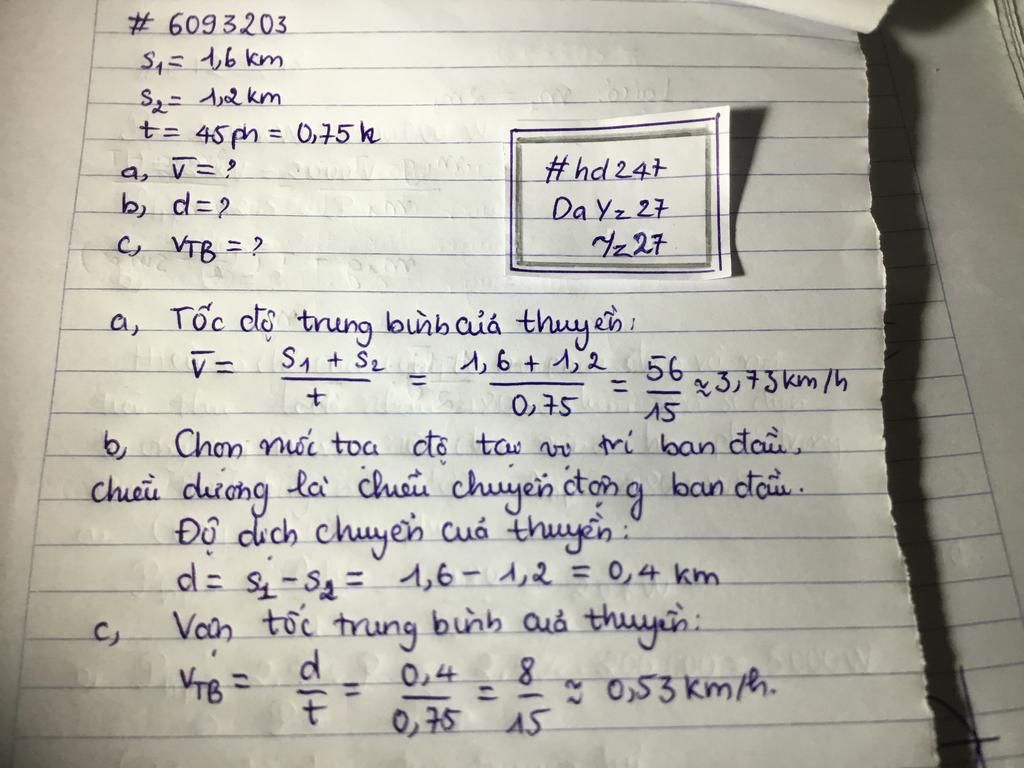 # 6093203
S₁ = 1,6 km
S₂ = 1,2 km
t = 45 ph = 0,75 h
a, v̅ = ?
b, d = ?
c, VTB = ?
#hd247
DaYz27
Yz27
a, Tốc độ trung bình của thuyền:
v̅ = (S₁ + S₂)/t = (1,6 + 1,2)/0,75 = 56/15 ≈ 3,73 km/h
b, Chọn mốc tọa độ tại vị trí ban đầu,
chiều dương là chiều chuyển động ban đầu.
Độ dịch chuyển của thuyền:
d = S₁ - S₂ = 1,6 - 1,2 = 0,4 km
c, Vận tốc trung bình của thuyền:
VTB = d/t = 0,4/0,75 = 8/15 ≈ 0,53 km/h.